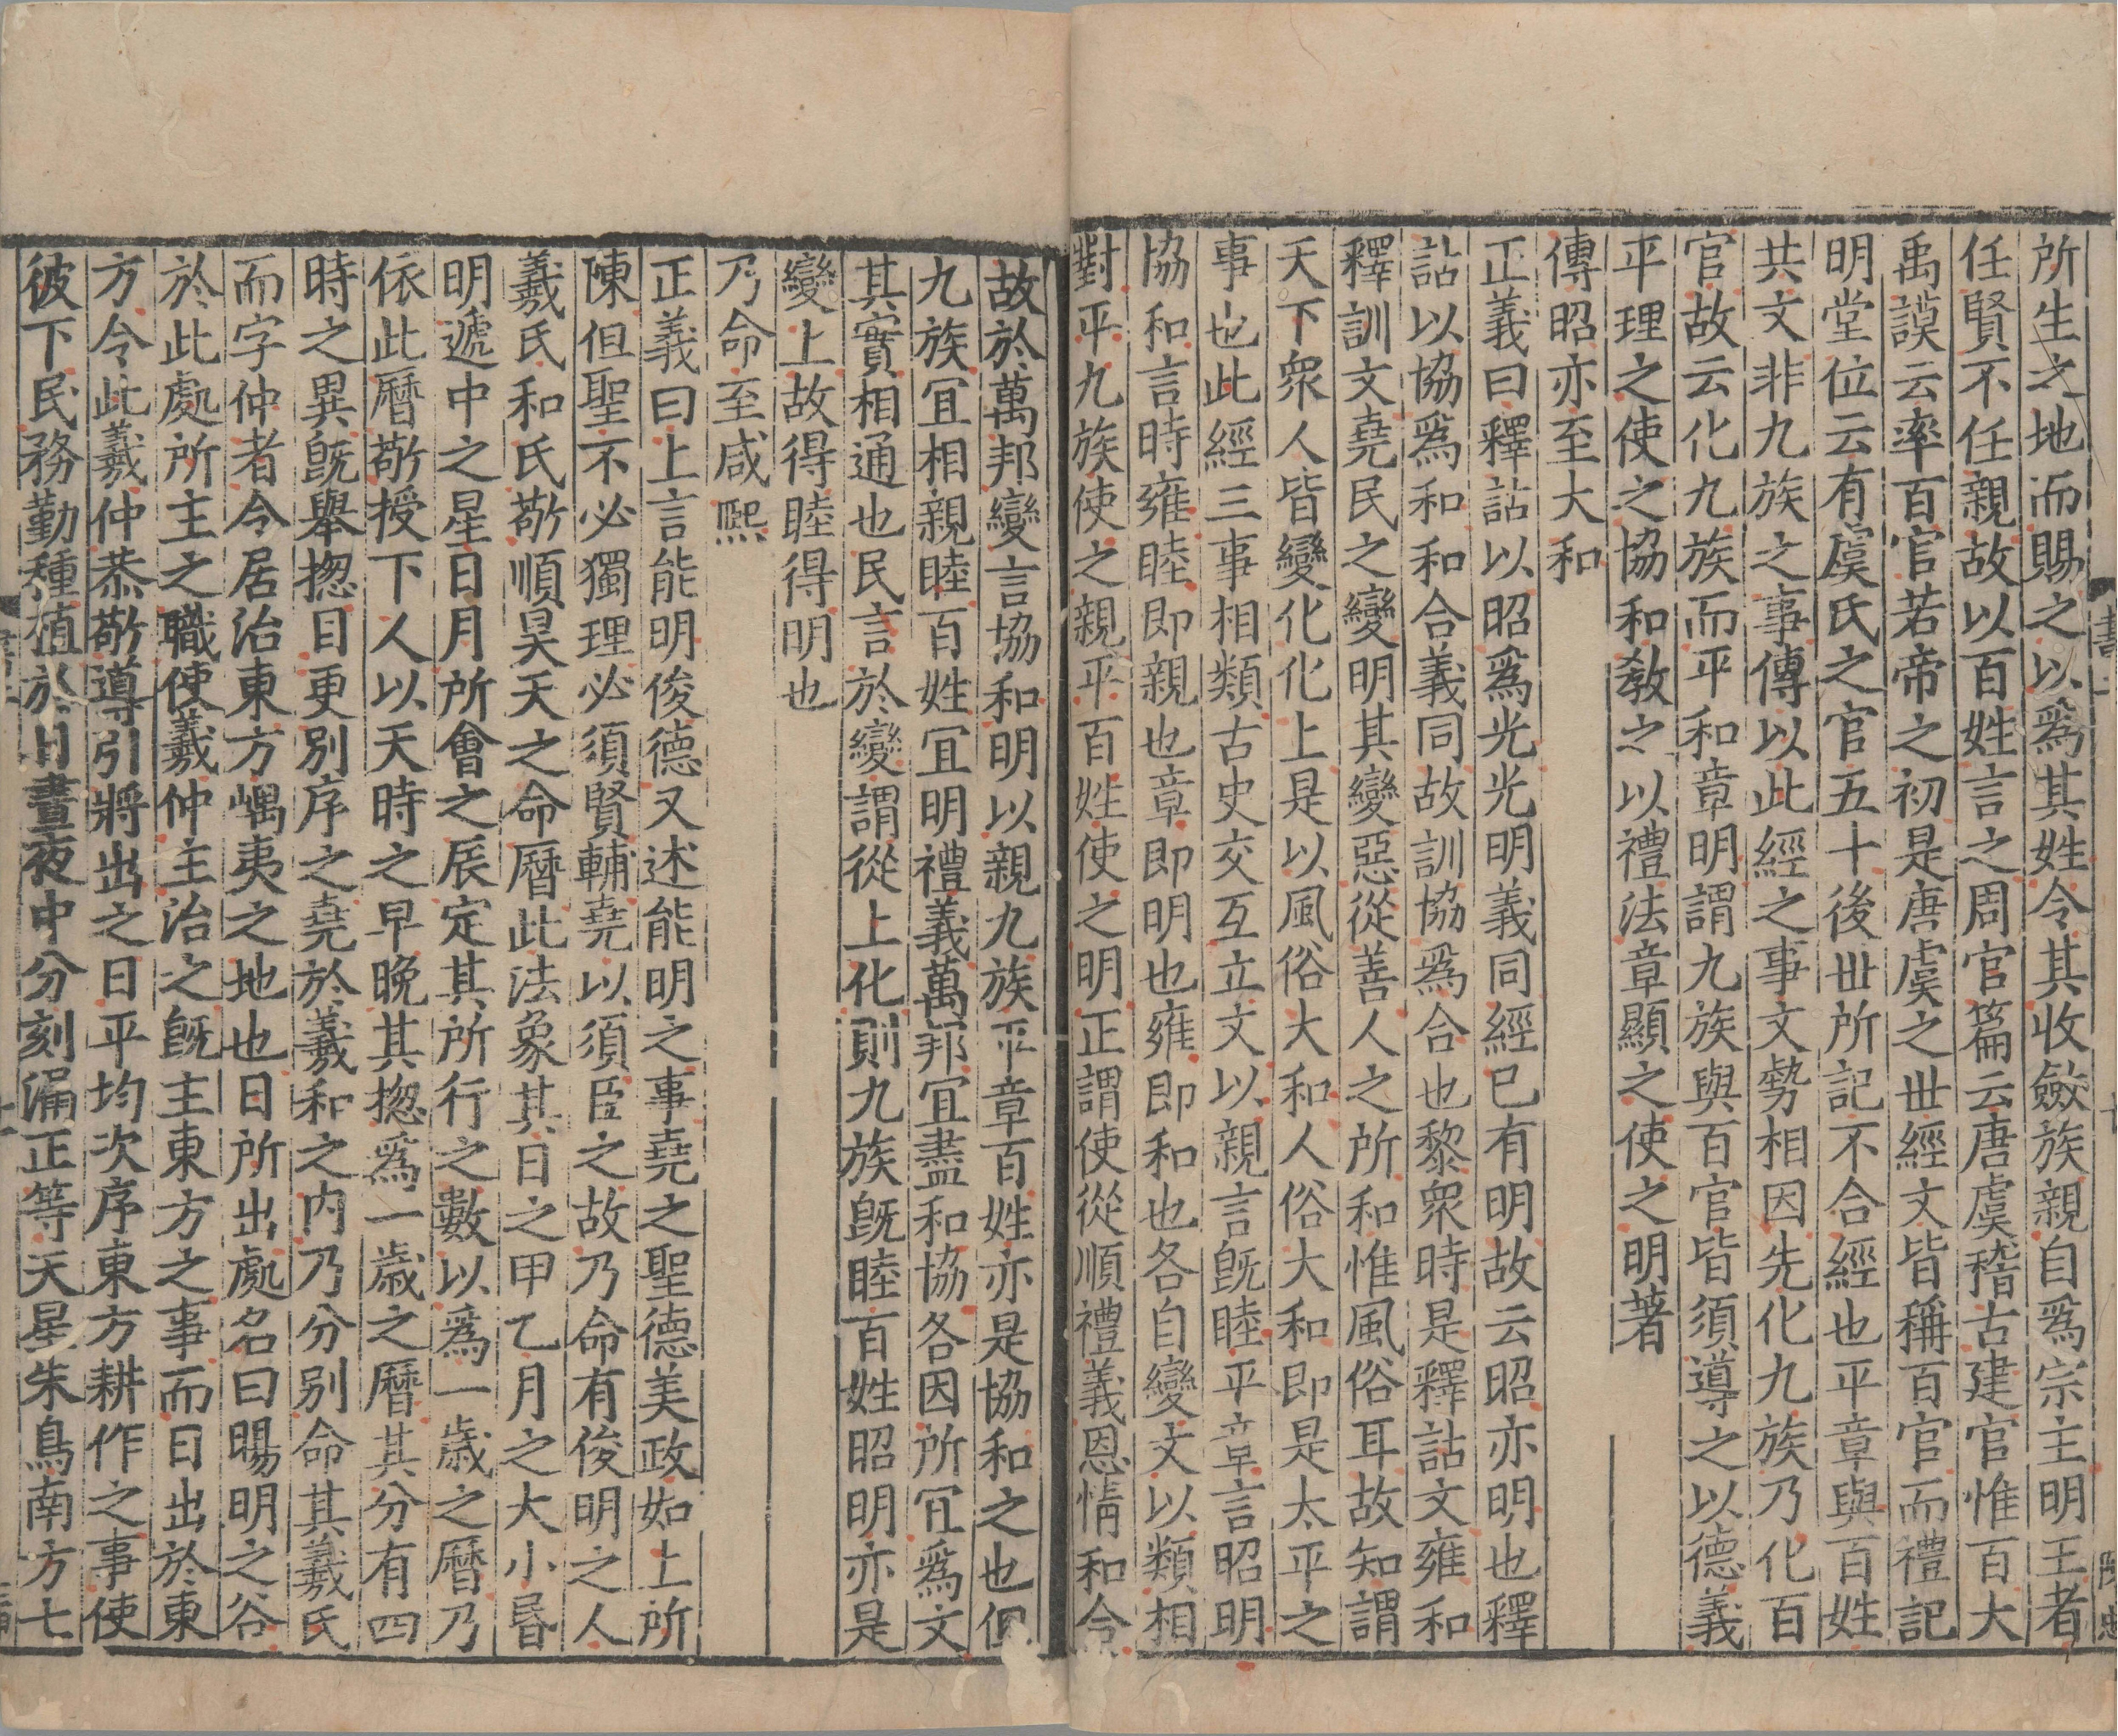 所生之地而賜之以爲其姓令其收斂族親自爲宗主明王者
任賢不任親故以百姓言之周官篇云唐虞稽古建官惟百大
禹謨云率百官若帝之初是唐虞之世經文皆稱百官而禮記
明堂位云有虞氏之官五十後世所記不合經也平章與百姓
共文非九族之事傳以此經之事文勢相因先化九族乃化百
官故云化九族而平和章明謂九族與百官皆須導之以德義
平理之使之協和敎之以禮法章顯之使之明著
傳昭亦至大和
正義曰釋詁以昭爲光光明義同經已有明故云昭亦明也釋
詁以協爲和和合義同故訓協爲合也黎衆時是釋詁文雍和
釋訓文堯民之變明其變惡從善人之所和惟風俗耳故知謂
天下衆人皆變化化上是以風俗大和人俗大和即是太平之
事也此經三事相類古史交互立文以親言旣睦平章言昭明
協和言時雍睦即親也章即明也雍即和也各自變文以類相
對平九族使之親平百姓使之明正謂使從順禮義恩情和合
故於萬邦變言協和明以親九族平章百姓亦是協和之也但
九族宜相親睦百姓宜明禮義萬邦宜盡和協各因所宜爲文
其實相通也民言於變謂從上化則九族旣睦百姓昭明亦是
變上故得睦得明也
乃命至咸熙
正義曰上言能明俊德又述能明之事堯之聖德美政如上所
陳但聖不必獨理必須賢輔堯以須臣之故乃命有俊明之人
羲氏和氏敬順昊天之命曆此法象其日之甲乙月之大小昬
明遞中之星日月所會之辰定其所行之數以爲一歲之曆乃
依此曆敬授下人以天時之早晚其揔爲一歲之曆其分有四
時之異旣舉揔目更別序之堯於羲和之內乃分別命其羲氏
而字仲者令居治東方嵎夷之地也日所出處名曰暘明之谷
於此處所主之職使羲仲主治之旣主東方之事而日出於東
方令此羲仲恭敬導引將出之日平均次序東方耕作之事使
彼下民務勤種植於日晝夜中分刻漏正等天星朱鳥南方七